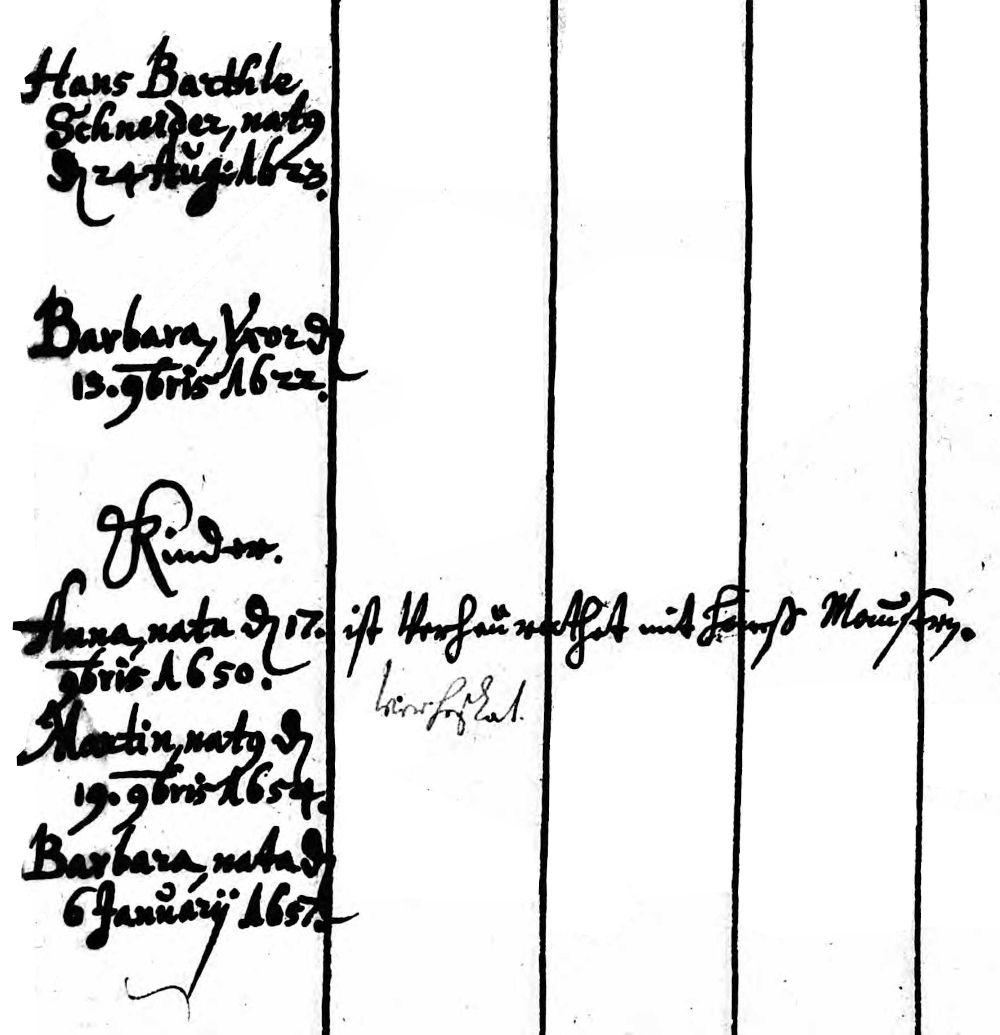 Hans Barthle
Schneider, natq
dn 24 Aug: 1623.
Barbara, Uxor dn
13. 9bris 1622.
Kinder.
Anna, nata dn 17. ist Verheürathet mit Hanß
9bris 1650.
Martin, natq dn
19. 9bris 1654.
Barbara, nata dn
6 Januarÿ 1657.